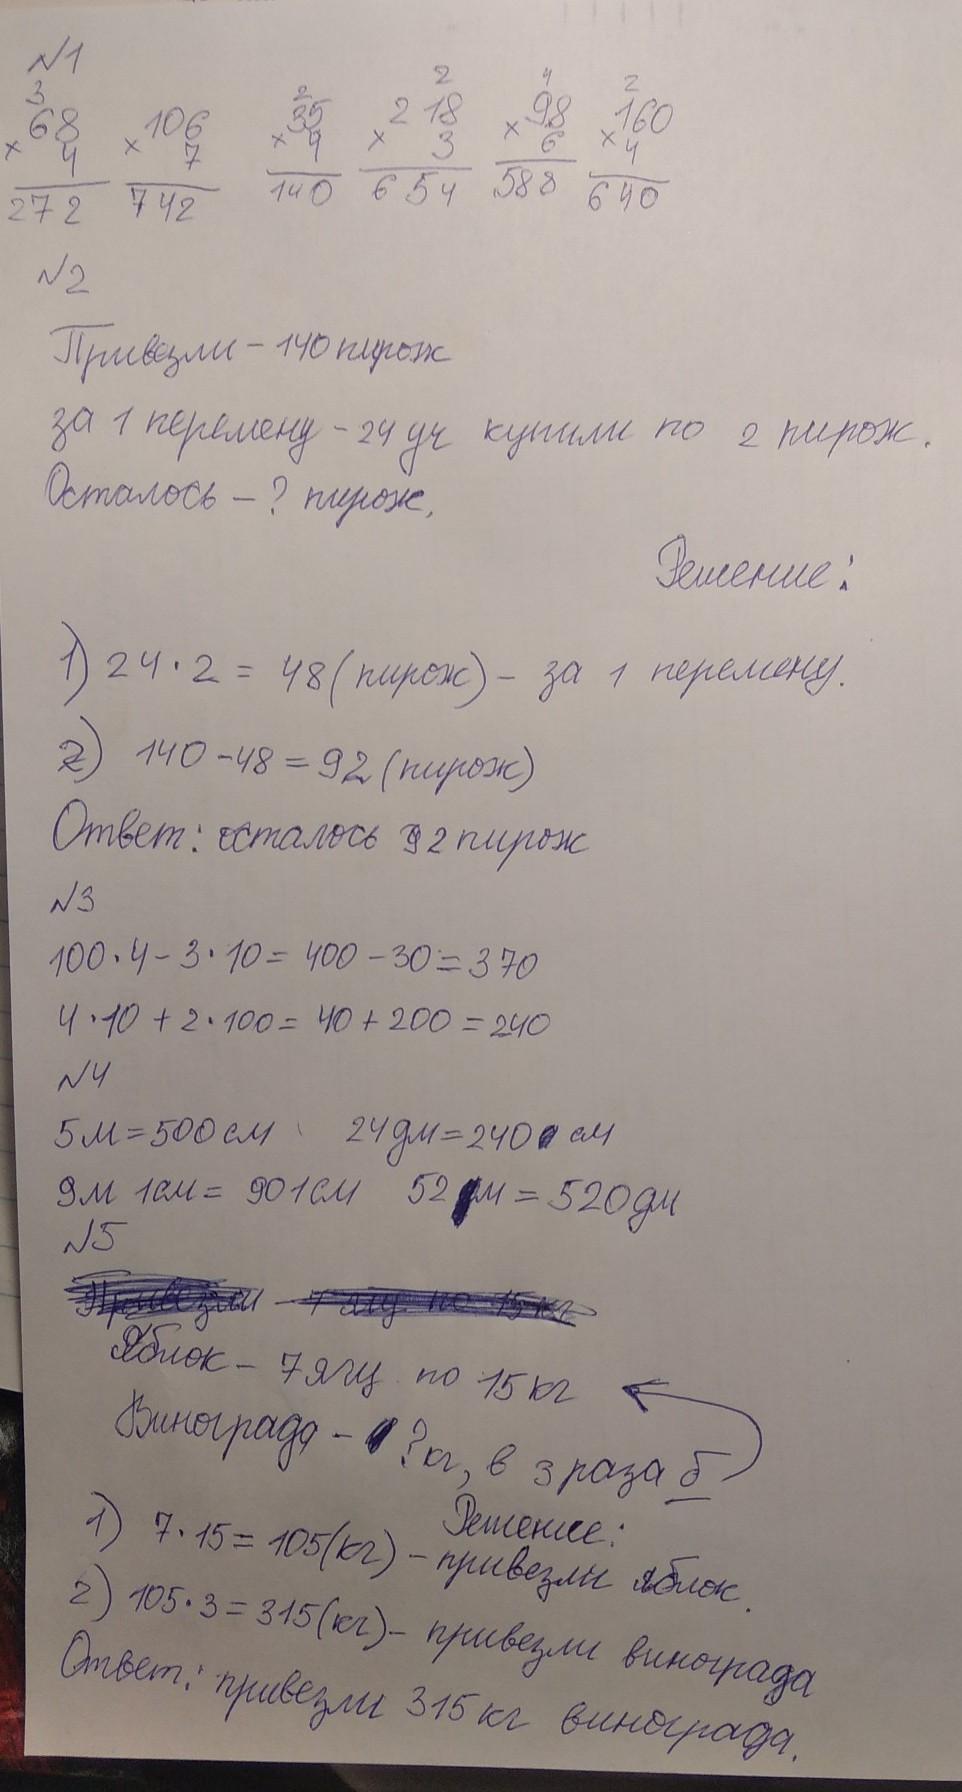 №1
3 2 2 4 2
68 106 35 218 98 160
× 4 × 7 × 4 × 3 × 6 × 4
272 742 140 654 588 640
№2
Привезли - 140 пирож
за 1 перемену - 24 уч купили по 2 пирож.
Осталось - ? пирож.
Решение:
1) 24 · 2 = 48 (пирож) - за 1 перемену.
2) 140 - 48 = 92 (пирож)
Ответ: осталось 92 пирож
№3
100 · 4 - 3 · 10 = 400 - 30 = 370
4 · 10 + 2 · 100 = 40 + 200 = 240
№4
5м = 500см 24дм = 240 см
9м 1см = 901см 52 м = 520дм
№5
Привезли - 7 ящ по 15 кг
Яблок - 7 ящ по 15 кг
Винограда - ? кг, в 3 раза б
Решение:
1) 7 · 15 = 105 (кг) - привезли яблок.
2) 105 · 3 = 315 (кг) - привезли винограда
Ответ: привезли 315 кг винограда.